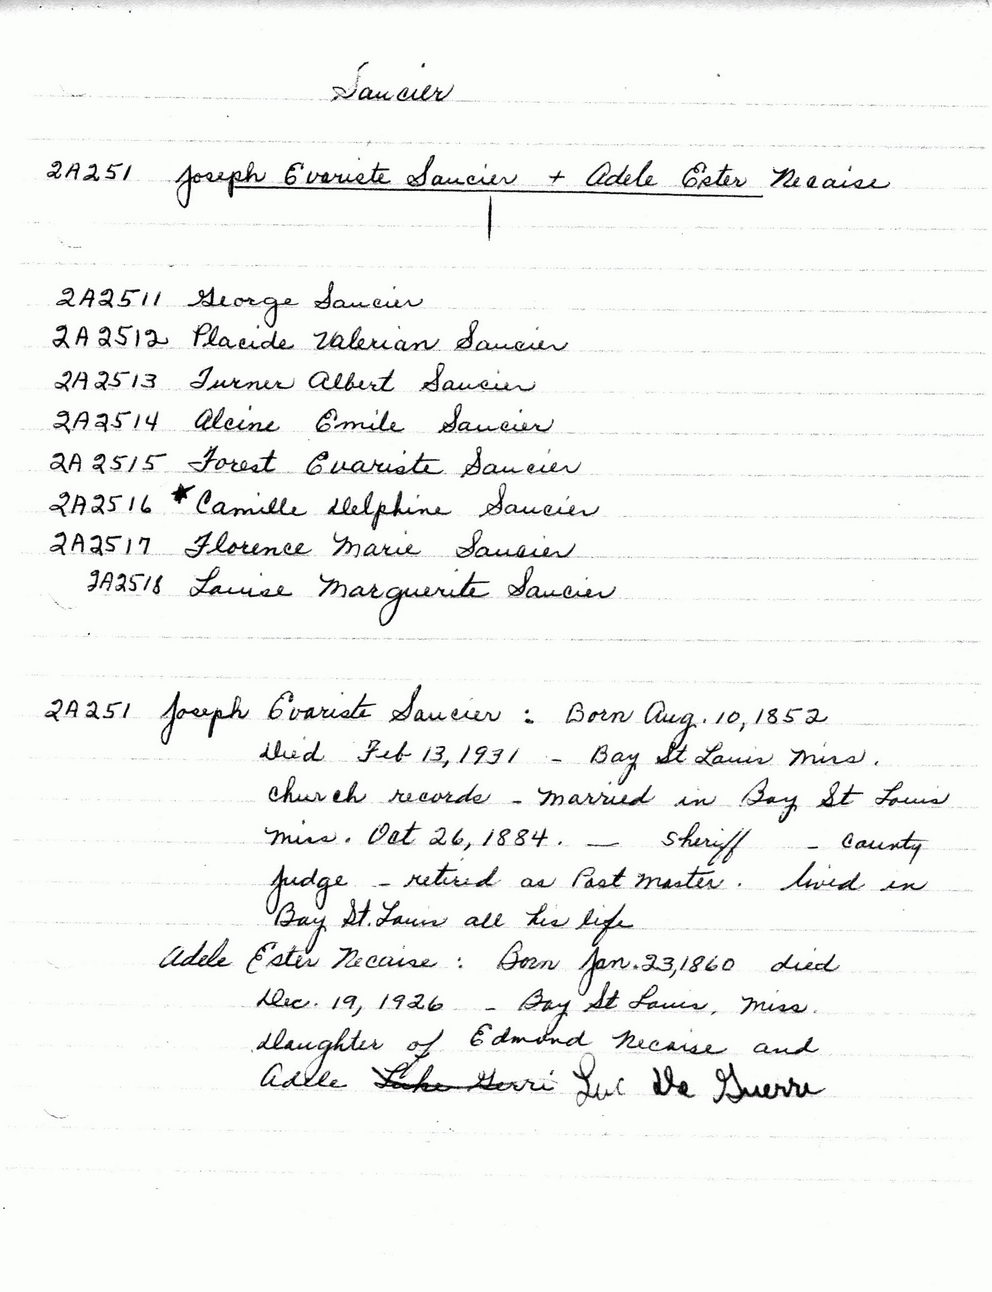 Saucier
2A251 Joseph Evariste Saucier + Adele Ester Necaise
2A2511 George Saucier
2A2512 Placide Valerian Saucier
2A2513 Turner Albert Saucier
2A2514 Alcine Emile Saucier
2A2515 Forest Evariste Saucier
2A2516 *Camille Delphine Saucier
2A2517 Florence Marie Saucier
2A2518 Louise Marguerite Saucier
2A251 Joseph Evariste Saucier : Born Aug. 10, 1852
Died Feb 13, 1931 - Bay St Louis Miss.
church records - married in Bay St Louis
Miss. Oct 26, 1884. — Sheriff - County
Judge - retired as Post Master. lived in
Bay St. Louis all his life
Adele Ester Necaise : Born Jan. 23, 1860 died
Dec. 19, 1926 - Bay St Louis, Miss.
Daughter of Edmond Necaise and
Adele Luke Gerri Luc De Guerre